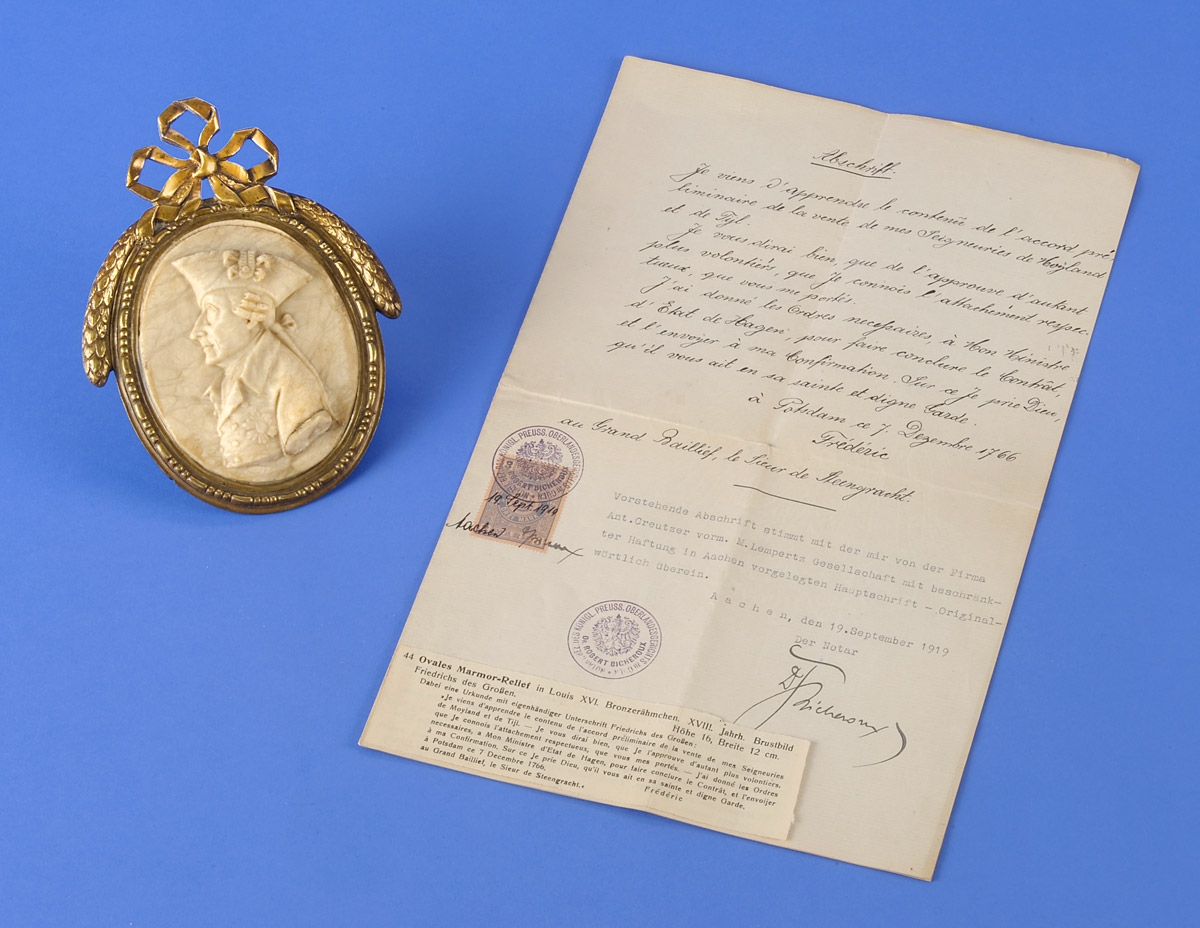 Abschrift.
Je viens d'apprendre le contenû de l'accord pré
liminaire de la vente de mes Seigneuries de Moÿland
et de Tÿl.
Je vous dirai bien, que de l'approuve d'autant
plus volontiérs, que Je connois l'attachement respec-
tueux, que vous me portés.
J'ai donné les Ordres necessaires, à Mon Ministre
d'Etat de Hagen, pour faire conclure le Contrât,
et l'envoyer à ma Confirmation. Sur ce Je prie Dieu,
qu'il vous ait en sa sainte et digne Garde.
à Potsdam ce 7. Dezembre 1766
Fréderic
au Grand Baillief, le Sieur de Steengracht.
KÖNIGL. PREUSS. OBERLANDESGERICHTS
ROBERT BICHEROUX
19. Sept. 1919
Aachen Bicheroux
Vorstehende Abschrift stimmt mit der mir von der Firma
Ant.Creutzer vorm. M.Lempertz Gesellschaft mit beschränk-
ter Haftung in Aachen vorgelegten Hauptschrift - Original-
wörtlich überein.
Aachen, den 19.September 1919
Der Notar
Dr Bicheroux
KÖNIGL. PREUSS. OBERLANDESGERICHTS
Dr. ROBERT BICHEROUX
44 Ovales Marmor-Relief in Louis XVI. Bronzerähmchen. XVIII. Jahrh. Brustbild
Friedrichs des Großen. Höhe 16, Breite 12 cm.
Dabei eine Urkunde mit eigenhändiger Unterschrift Friedrichs des Großen:
«Je viens d'apprendre le contenu de l'accord préliminaire de la vente de mes Seigneuries
de Moyland et de Tijl. — Je vous dirai bien, que je l'approuve d'autant plus volontiers,
que Je connois l'attachement respectueux, que vous mes portés. — J'ai donné les Ordres
necessaires, a Mon Ministre d'Etat de Hagen, pour faire conclure le Contrât, et l'envoijer
à ma Confirmation. Sur ce Je prie Dieu, qu'il vous ait en sa sainte et digne Garde.
à Potsdam ce 7 Decembre 1766.
au Grand Baillief, le Sieur de Steengracht.« Fréderic